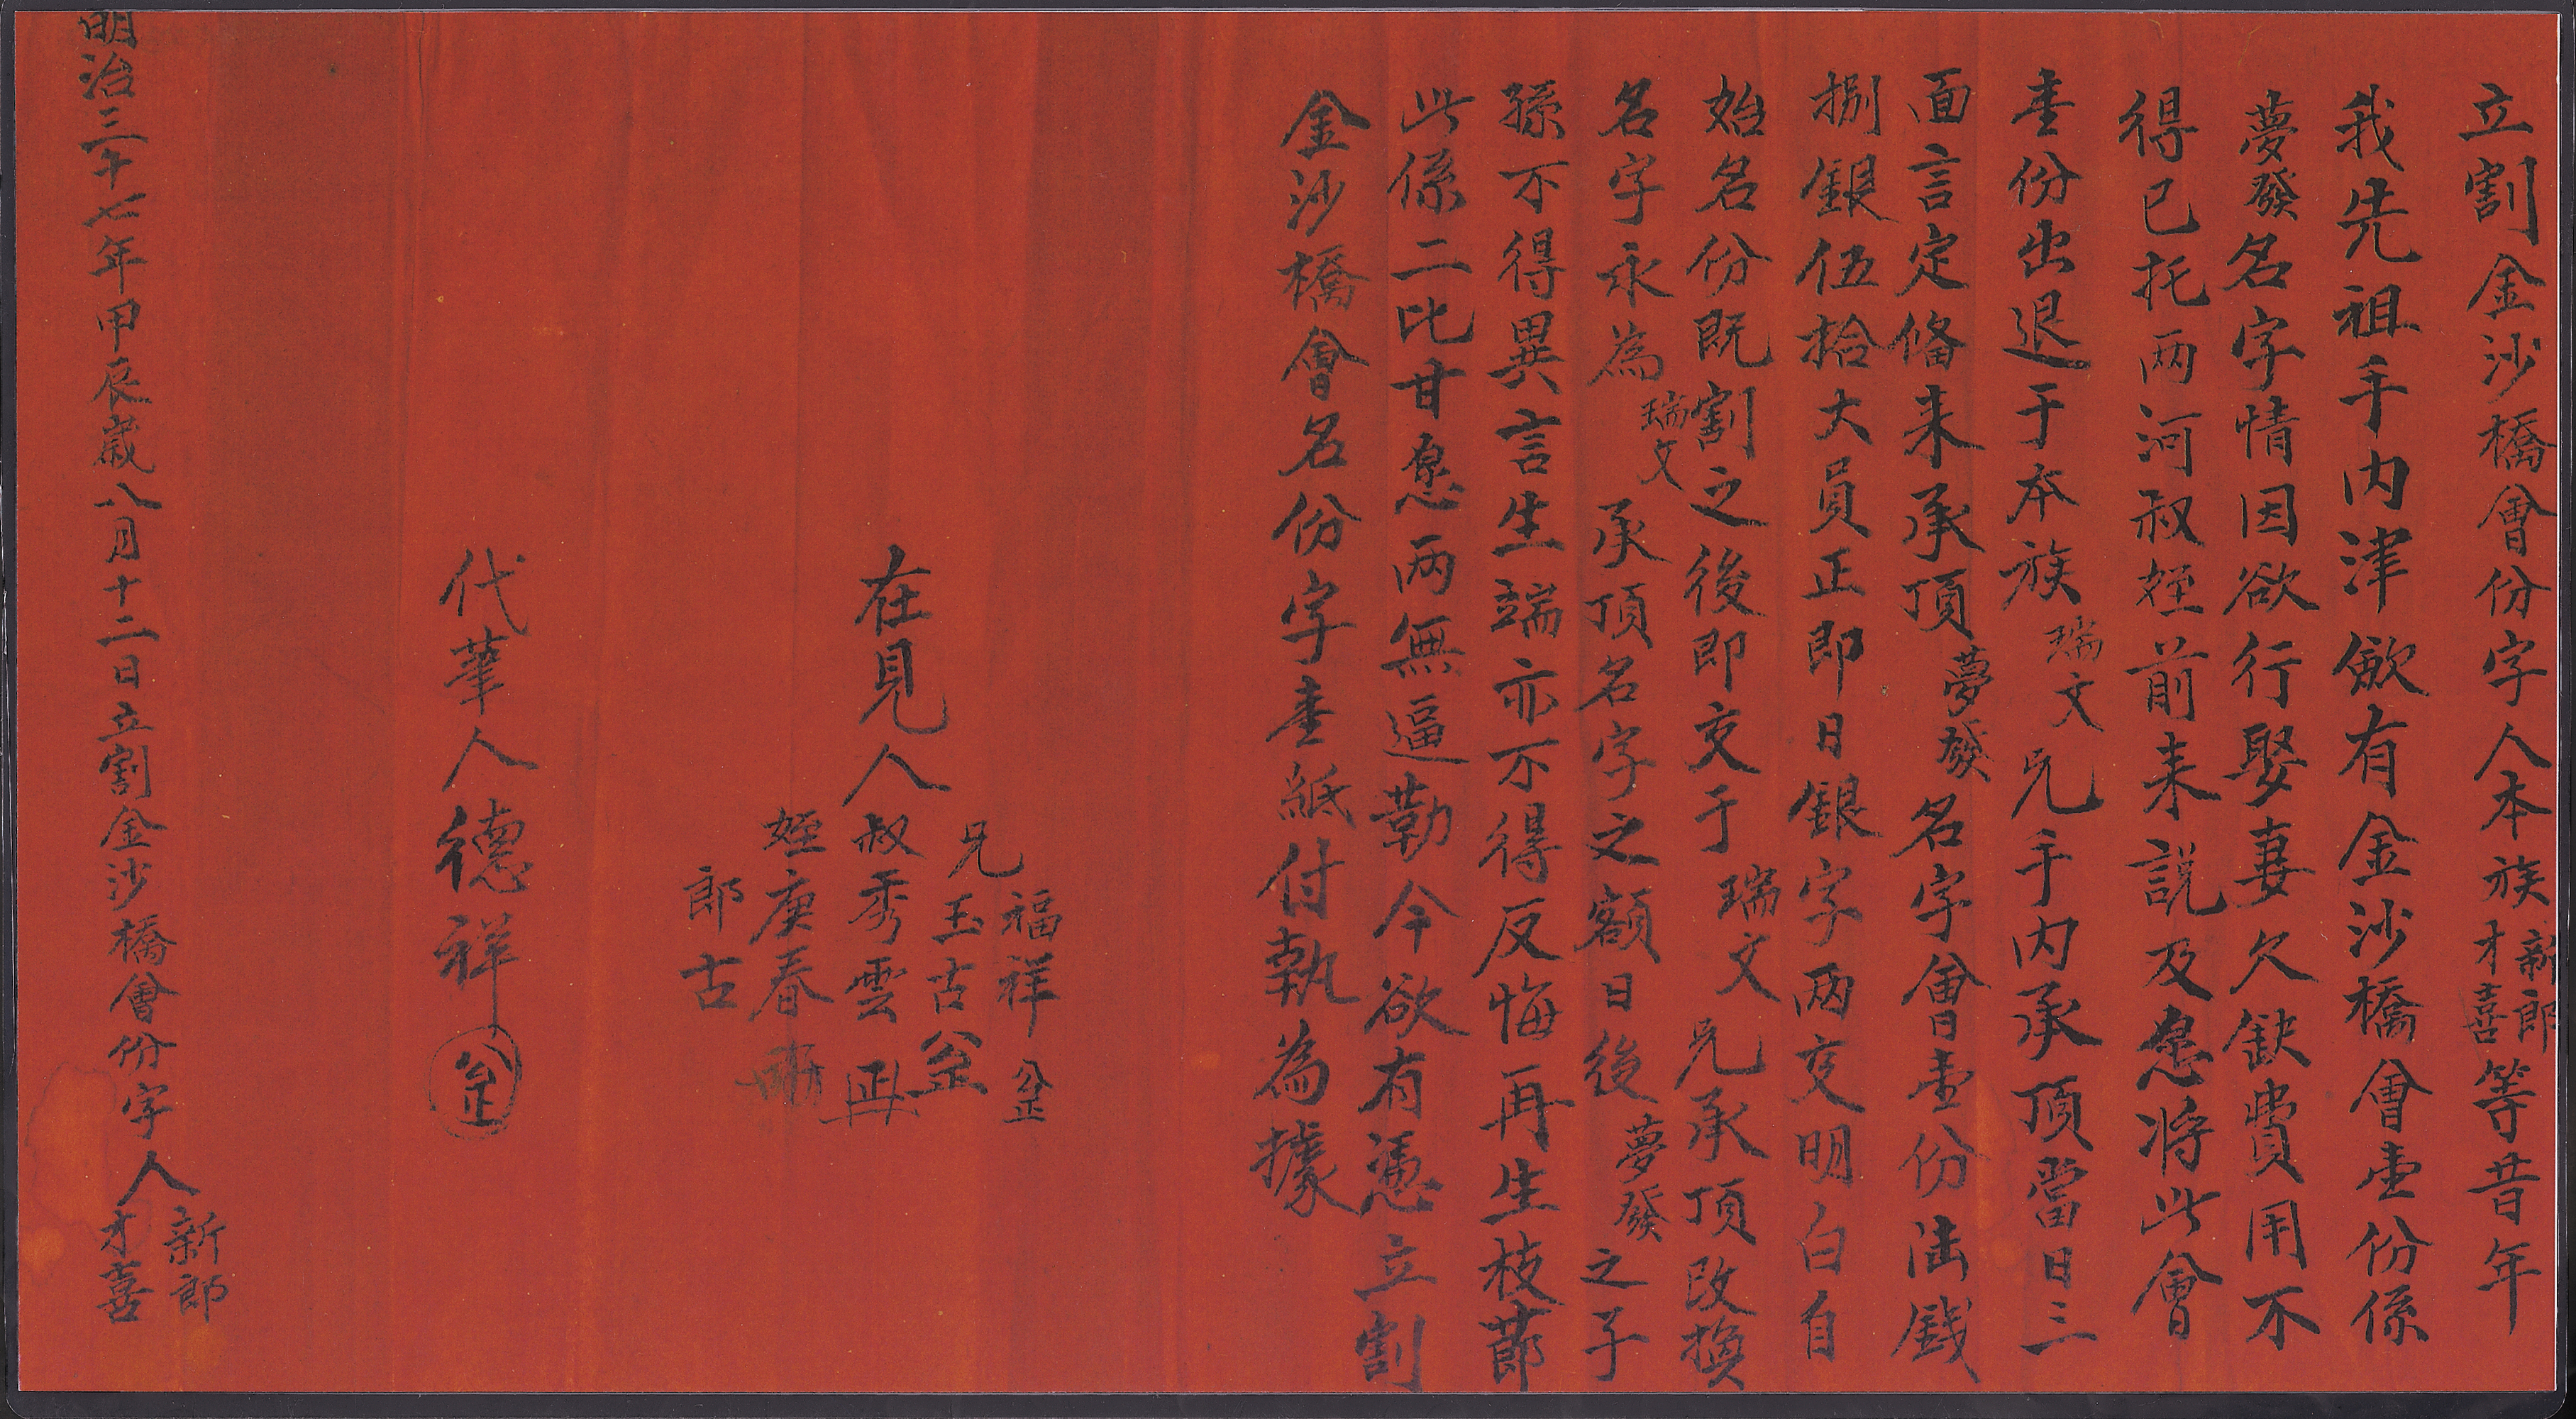 立割金沙橋會份字人本族新郎才喜等昔年
我先祖手內津歛有金沙橋會壹份係
夢發名字情因欲行娶妻欠缺費用不
得已托两河叔姪前来説及愿将此會
壹份出退于本族瑞文兄手内承頂當日三
面言定俻来承頂夢發名字會壹份陆錢
捌銀伍拾大員正即日銀字两交明白自
始名份既割之後即交于瑞文兄承頂改換
名字永為瑞文承頂名字之額日後夢發之子
孫不得異言生端亦不得反悔再生枝莭
此係二比甘愿两無逼勒今欲有憑立割
金沙橋會名份字壹紙付執為據
在見人
兄福祥
玉古
叔秀雲
姪庚春
郎古
代筆人德祥
明治三十七年甲辰嵗八月十二日立割金沙橋會份字人新郎才喜